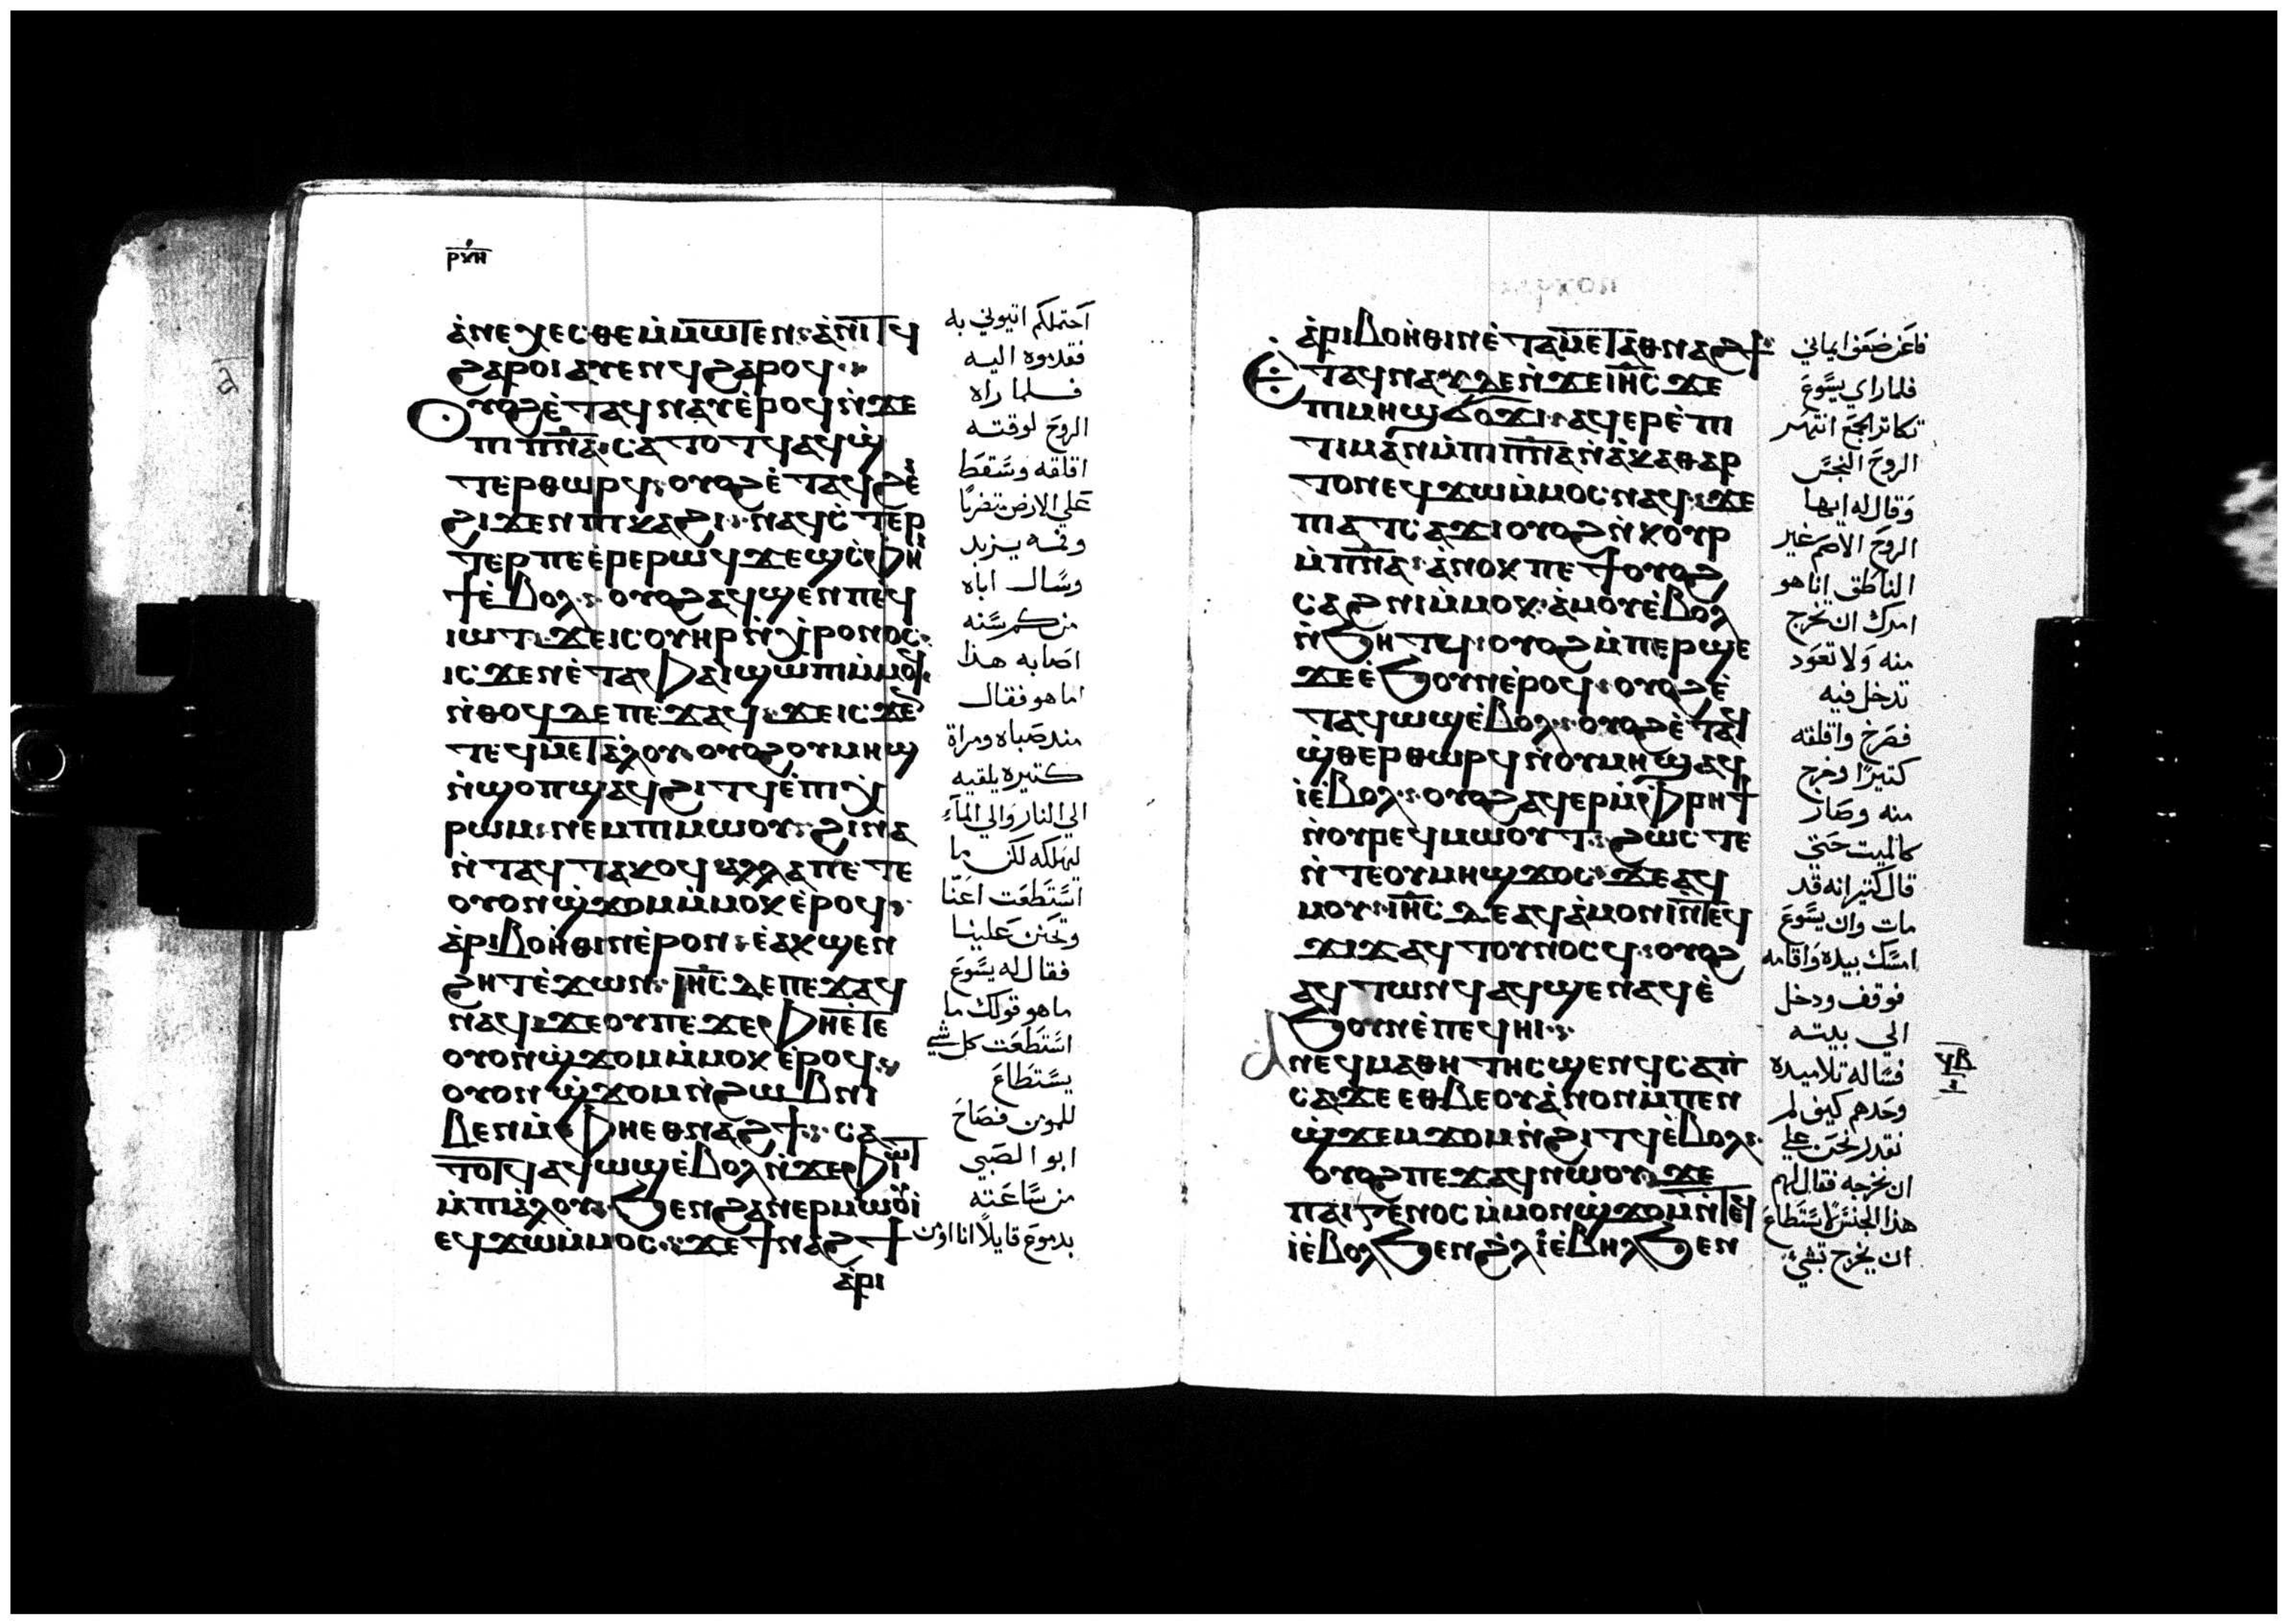 ⲣⲕⲏ
ⲁ̀ⲛⲉⲭⲉⲥⲑⲉ ⲙ̀ⲙⲱⲧⲉⲛ: ⲁ̀ⲛⲓⲧϥ
ϩⲁⲣⲟⲓ ⲁⲩⲉⲛϥ ϩⲁⲣⲟϥ
ⲟⲩⲟϩ ⲉ̀ⲧⲁϥⲛⲁⲩ ⲉ̀ⲣⲟϥ ⲛ̀ϫⲉ
ⲡⲓⲡ̅ⲛ̅ⲁ̅ ⲥⲁⲧⲟⲧϥ ⲁϥϣ̀
ⲧⲉⲣⲑⲱⲣϥ: ⲟⲩⲟϩ ⲉ̀ⲧⲁϥϩⲉⲓ
ϩⲓϫⲉⲛ ⲡⲓⲕⲁϩⲓ: ⲛⲁϥⲥ̀ⲧⲉⲣ
ⲧⲉⲣ ⲡⲉ ⲉ̀ⲣⲉ ⲣⲱϥ ϫⲉϣ ⲥ̀ⲫⲏⲓ
ϯ ⲉ̀ⲃⲟⲗ: ⲟⲩⲟϩ ⲁϥϣⲉⲛ ⲡⲉϥ
ⲓⲱⲧ: ϫⲉ ⲓⲥ ⲟⲩⲏⲣ ⲛ̀ⲭⲣⲟⲛⲟⲥ:
ⲓⲥϫⲉⲛ ⲉ̀ⲧⲁ ⲫⲁⲓ ϣⲱⲡⲓ ⲙ̀ⲙⲟϥ:
ⲛ̀ⲑⲟϥ ⲇⲉ ⲡⲉϫⲁϥ: ϫⲉ ⲓⲥϫⲉⲛ
ⲧⲉϥⲙⲉⲧⲁ̀ⲗⲟⲩ: ⲟⲩⲟϩ ⲟⲩⲙⲏϣ
ⲛ̀ⲥⲟⲡ ϣⲁϥϩⲓⲧϥ ⲉ̀ⲡⲓⲭ̀
ⲣⲱⲙ: ⲛⲉⲙ ⲡⲓⲙⲱⲟⲩ: ϩⲓⲛⲁ
ⲛ̀ⲧⲁϥⲧⲁⲕⲟϥ ⲁⲗⲗⲁ ⲡⲉⲧⲉ
ⲟⲩⲟⲛ ϣ̀ϫⲟⲙ ⲙ̀ⲙⲟⲕ ⲉ̀ⲣⲟϥ:
ⲁ̀ⲣⲓⲃⲟⲏ̀ⲑⲓⲛ ⲉ̀ⲣⲟⲛ: ⲉ̀ⲁⲕϣⲉⲛ
ϩⲏⲧ ⲉ̀ϫⲱⲛ: ⲓⲏ̅ⲥ̅ ⲇⲉ ⲡⲉϫⲁϥ
ⲛⲁϥ: ϫⲉ ⲟⲩ ⲡⲉ ϫⲉ ⲫⲏⲉⲧⲉ
ⲟⲩⲟⲛ ϣ̀ϫⲟⲙ ⲙ̀ⲙⲟⲕ ⲉ̀ⲣⲟϥ:
ⲟⲩⲟⲛ ϣ̀ϫⲟⲙ ⲛ̀ϩⲱⲃ ⲛⲓ
ⲃⲉⲛ ⲙ̀ⲫⲏⲉⲑⲛⲁϩϯ: ⲥⲁ
ⲧⲟⲧϥ ⲁϥⲱϣ ⲉ̀ⲃⲟⲗ ⲛ̀ϫⲉ ⲫⲓⲱⲧ
ⲙ̀ⲡⲓⲁ̀ⲗⲟⲩ: ϧⲉⲛ ϩⲁⲛⲉⲣⲙⲱⲟⲩⲓ̀
ⲉϥϫⲱ ⲙ̀ⲙⲟⲥ: ϫⲉ ϯⲛⲁϩϯ
ⲁ̀ⲣⲓ
احتملكم اتيوني به
فقدموه اليه
فلما راه
الروح لوقته
اقلقه وسقط
علي الارض متضربًا
وفمه يزبد
وسال اباه
من كم سنه
اصابه هذا
اما هو فقال
مند صباه ومراة
كتيره يلقيه
الي النار والي المآء
ليهلكه لكن ما
استطعت اعنا
وتحنن علينا
فقال له يسوع
ما هو قولك ما
استطعت كل شي
يستطاع
للمومن فصاح
ابو الصبي
من ساعته
بدموع قايلًا انا اومن
ⲁ̀ⲣⲓⲃⲟⲏ̀ⲑⲓⲛ ⲉ̀ⲧⲁⲙⲉⲧⲁⲑⲛⲁϩϯ:
ⲉ̀ⲧⲁϥⲛⲁⲩ ⲇⲉ ⲛ̀ϫⲉ ⲓⲏ̅ⲥ̅ ϫⲉ
ⲡⲓⲙⲏϣ ϭⲟϫⲓ: ⲁϥⲉⲣⲉ̀ⲡⲓ
ⲧⲓⲙⲁⲛ ⲙ̀ⲡⲓⲡ̅ⲛ̅ⲁ̅ ⲛ̀ⲁ̀ⲕⲁⲑⲁⲣ
ⲧⲟⲛ ⲉϥϫⲱ ⲙ̀ⲙⲟⲥ ⲛⲁϥ: ϫⲉ
ⲡⲓⲁⲧⲥⲁϫⲓ ⲟⲩⲟϩ ⲛ̀ⲕⲟⲩⲣ
ⲙ̀ⲡ̅ⲛ̅ⲁ̅: ⲁ̀ⲛⲟⲕ ⲡⲉϯⲟⲩⲟϩ
ⲥⲁϩⲛⲓ ⲙ̀ⲙⲟⲕ: ⲁ̀ⲙⲟⲩ ⲉ̀ⲃⲟⲗ
ⲛ̀ϧⲏⲧϥ: ⲟⲩⲟϩ ⲙ̀ⲡⲉⲣϣⲉ
ϫⲉ ⲉ̀ϧⲟⲩⲛ ⲉ̀ⲣⲟϥ: ⲟⲩⲟϩ ⲉ̀
ⲧⲁϥⲱϣ ⲉ̀ⲃⲟⲗ: ⲟⲩⲟϩ ⲉ̀ⲧⲁϥ
ϣ̀ⲑⲉⲣⲑⲱⲣϥ ⲛ̀ⲟⲩⲙⲏϣ ⲁϥ
ⲓ̀ ⲉ̀ⲃⲟⲗ: ⲟⲩⲟϩ ⲁϥⲉⲣ ⲙ̀ⲫⲣⲏϯ
ⲛ̀ⲟⲩⲣⲉϥⲙⲱⲟⲩⲧ: ϩⲱⲥⲧⲉ
ⲛ̀ⲧⲉ ⲟⲩⲙⲏϣ ϫⲟⲥ: ϫⲉ ⲁϥ
ⲙⲟⲩ: ⲓⲏ̅ⲥ̅ ⲇⲉ ⲁϥⲁ̀ⲙⲟⲛⲓ ⲛ̀ⲧⲉϥ
ϫⲓϫ ⲁϥⲧⲟⲩⲛⲟⲥϥ: ⲟⲩⲟϩ
ⲁϥⲧⲱⲛϥ ⲁϥϣⲉⲛⲁϥ ⲉ̀
ϧⲟⲩⲛ ⲉ̀ⲡⲉϥⲏⲓ:
ⲁ̀ⲛⲉϥⲙⲁⲑⲏⲧⲏⲥ ϣⲉⲛϥ ⲥⲁⲡ̀
ⲥⲁ: ϫⲉ ⲉⲑⲃⲉⲟⲩ ⲁ̀ⲛⲟⲛ ⲙ̀ⲡⲉⲛ
ϣ̀ϫⲉⲙϫⲟⲙ ⲛ̀ϩⲓⲧϥ ⲉ̀ⲃⲟⲗ:
ⲟⲩⲟϩ ⲡⲉϫⲁϥ ⲛⲱⲟⲩ: ϫⲉ
ⲡⲁⲓⲅⲉⲛⲟⲥ ⲙ̀ⲙⲟⲛ ϣ̀ϫⲟⲙ ⲛ̀ⲧⲉϥ
ⲓ̀ ⲉ̀ⲃⲟⲗ ϧⲉⲛ ϩ̀ⲗⲓ ⲉ̀ⲃⲏⲗ ϧⲉⲛ
فاعن ضعف ايماني
فلما راي يسوع
تكاتر الجمع انتهر
الروح النجس
وقال له ايها
الروح الاصم غير
الناطق انا هو
امرك ان تخرج
منه ولا تعود
تدخل فيه
فصرخ واقلقه
كتيرًا وخرج
منه وصار
كالميت حتي
قال كتير انه قد
مات وان يسوع
امسك بيده واقامه
فوقف ودخل
الي بيته
فساله تلاميده
وحدهم كيف لم
نقدر نحن علي
ان نخرجه فقال لهم
هذا الجنس لا يستطاع
ان يخرج بشي